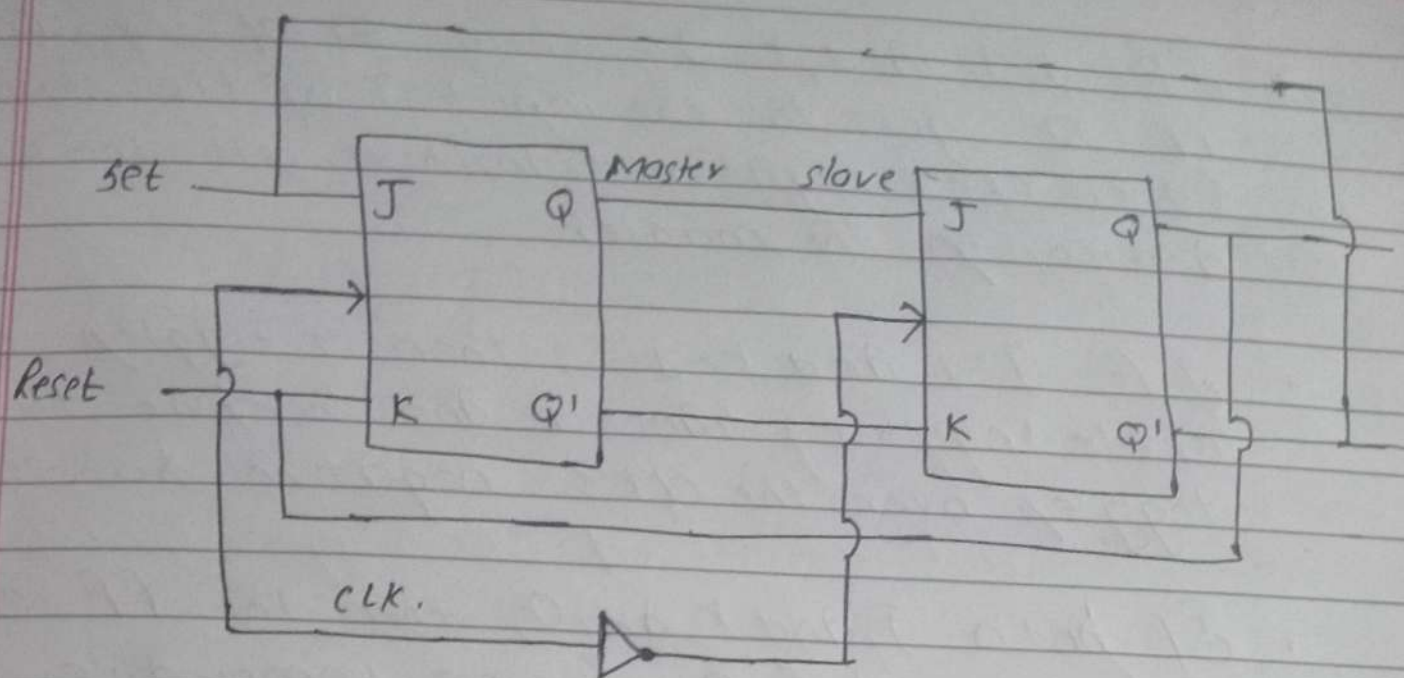 Set
Master slave
J Q
J Q
Reset
K Q'
K Q'
CLK.